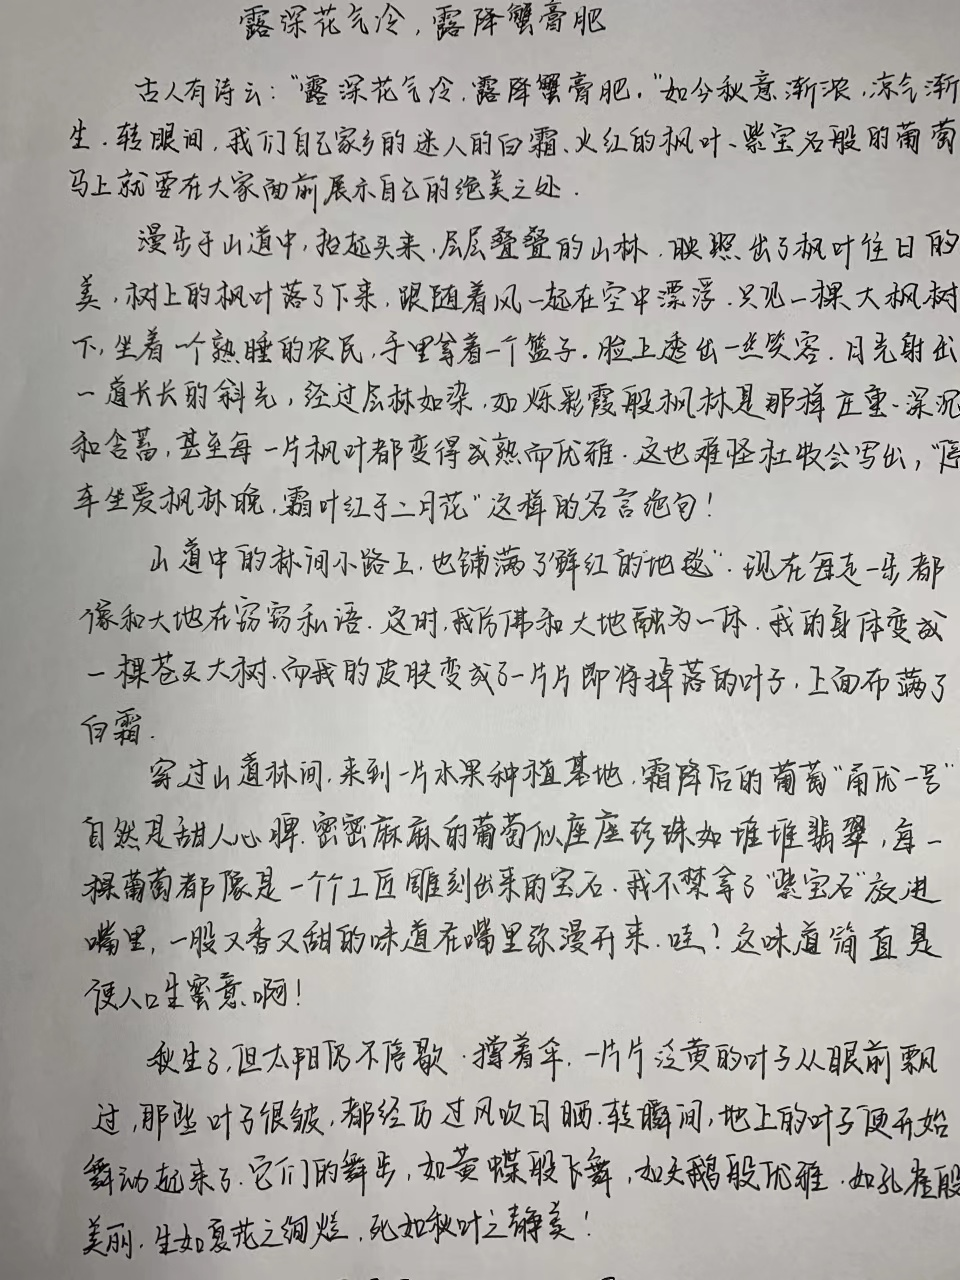 露深花气冷，露降蟹膏肥
古人有诗云：“露深花气冷，露降蟹膏肥。”如今秋意渐浓，凉气渐
生。转眼间，我们自己家乡的迷人的白霜、火红的枫叶、紫宝石般的葡萄
马上就要在大家面前展示自己的绝美之处。
漫步于山道中，抬起头来，层层叠叠的山林，映照出了枫叶往日的
美，树上的枫叶落了下来，跟随着风一起在空中漂浮。只见一棵大枫树
下，坐着一个熟睡的农民，手里拿着一个篮子。脸上透出一丝笑容。月光射出
一道长长的斜光，经过层林如染，如烁彩霞般枫林是那样庄重、深沉
和含蓄，甚至每一片枫叶都变得成熟而优雅。这也难怪杜牧会写出，“停
车坐爱枫林晚，霜叶红于二月花”这样的名言绝句！
山道中的林间小路上，也铺满了鲜红的“地毯”。现在每走一步都
像和大地在窃窃私语。这时，我仿佛和大地融为一体。我的身体变成
一棵苍天大树，而我的皮肤变成了一片片即将掉落的叶子，上面布满了
白霜。
穿过山道林间，来到一片水果种植基地，霜降后的葡萄“甬优一号”
自然是甜人心脾。密密麻麻的葡萄似座座珍珠如堆堆翡翠，每一
棵葡萄都像是一个个工匠雕刻出来的宝石。我不禁拿了“紫宝石”放进
嘴里，一股又香又甜的味道在嘴里弥漫开来。哇！这味道简直是
使人口生蜜意啊！
秋生了，但太阳仍不停歇。撑着伞，一片片泛黄的叶子从眼前飘
过，那些叶子很皱，都经历过风吹日晒。转瞬间，地上的叶子便开始
舞动起来了。它们的舞步，如黄蝶般飞舞，如天鹅般优雅，如孔雀般
美丽。生如夏花之绚烂，死如秋叶之静美！